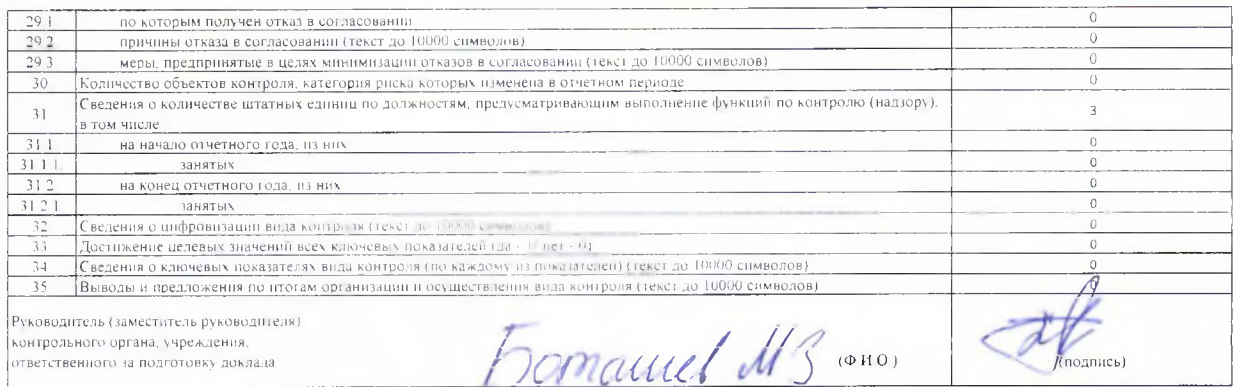 29.1 по которым получен отказ в согласовании 0
29.2 причины отказа в согласовании (текст до 10000 символов) 0
29.3 меры, предпринятые в целях минимизации отказов в согласовании (текст до 10000 символов) 0
30 Количество объектов контроля, категория риска которых изменена в отчетном периоде 0
31 Сведения о количестве штатных единиц по должностям, предусматривающим выполнение функций по контролю (надзору), 3
в том числе
31.1 на начало отчетного года, из них 0
31.1.1 занятых 0
31.2 на конец отчетного года, из них 0
31.2.1 занятых 0
32 Сведения о цифровизации вида контроля (текст до 10000 символов) 0
33 Достижение целевых значений всех ключевых показателей (да - 1/ нет - 0) 0
34 Сведения о ключевых показателях вида контроля (по каждому из показателей) (текст до 10000 символов) 0
35 Выводы и предложения по итогам организации и осуществления вида контроля (текст до 10000 символов) 0
Руководитель (заместитель руководителя)
контрольного органа, учреждения,
ответственного за подготовку доклада Боташев МЗ (Ф И О) (подпись)